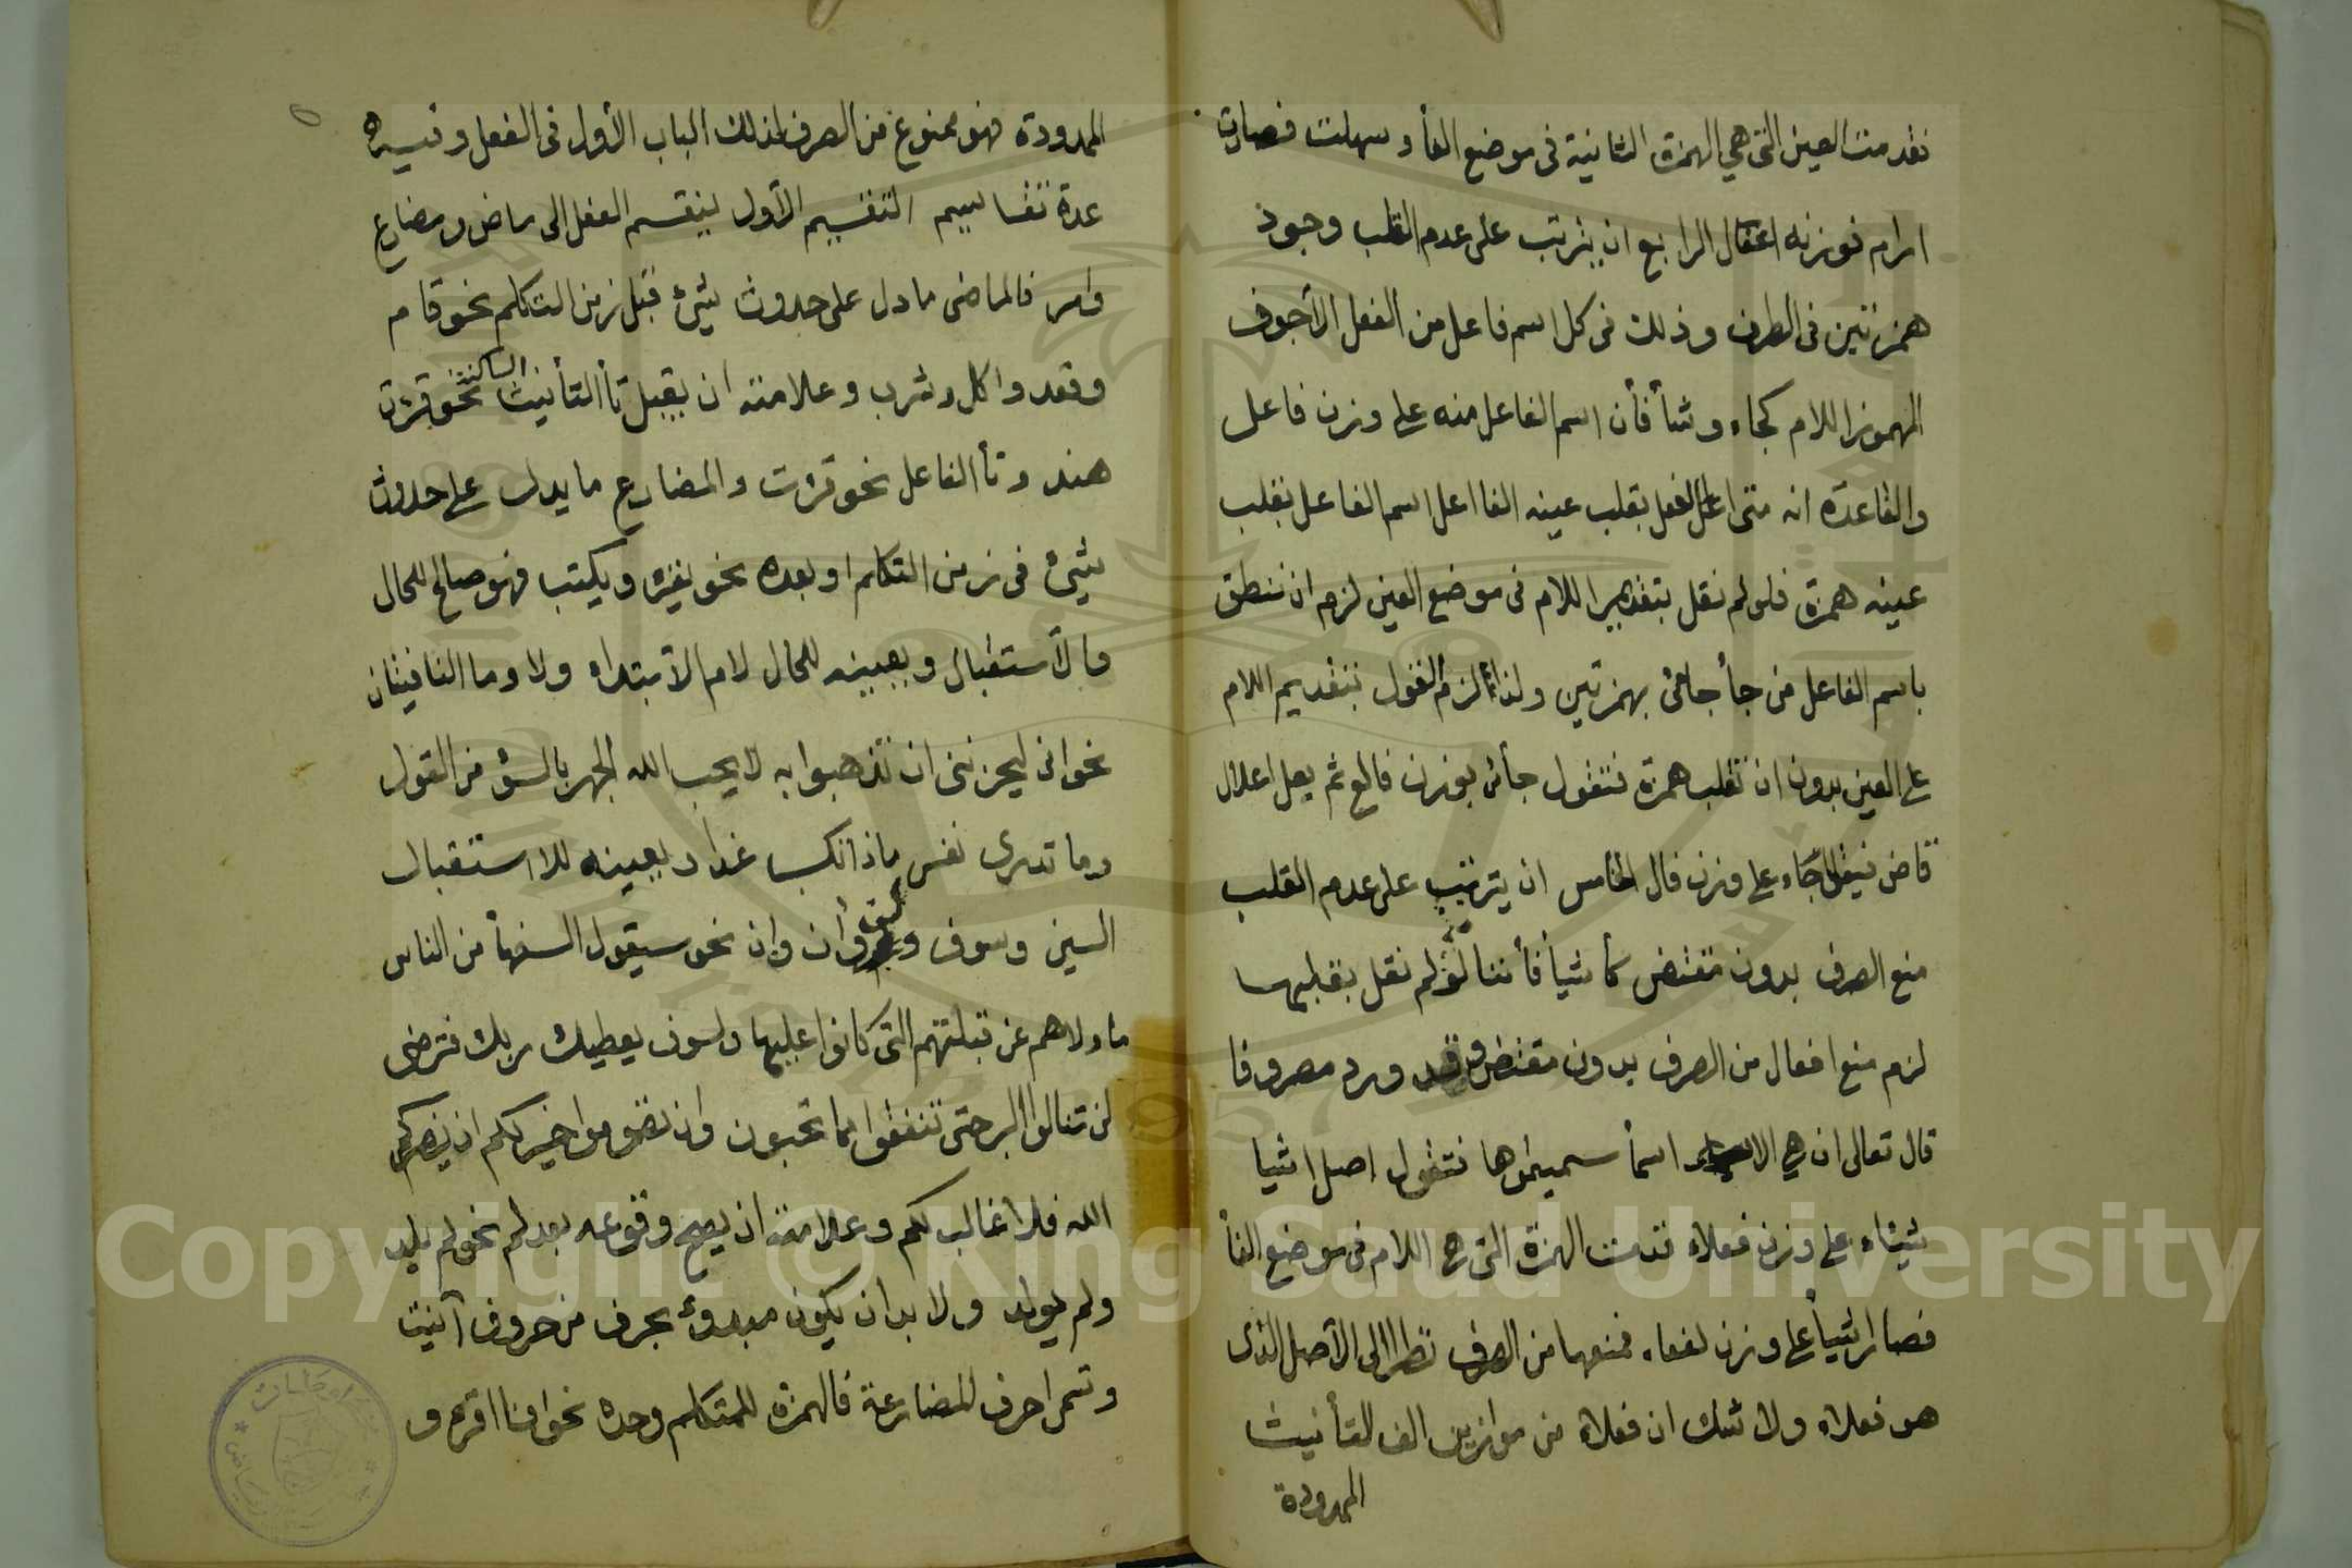 فقدمت العين التي هي الهمزة الثانية في موضع الفأ وسهلت فصارت
ارام فوزنه اعفال الرابع ان يترتب على عدم القلب وجود
همزتين في الطرف وذلك في كل اسم فاعل من الفعل الأجوف
المهموز اللام كجاء وشأ فأن اسم الفاعل منه على وزن فاعل
والقاعدة انه متى اعل الفعل بقلب عينه الفا اعل اسم الفاعل بقلب
عينه همزة فلو لم نقل بتقديم اللام في موضع العين لزم ان ننطق
باسم الفاعل من جأ جائئ بهمزتين ولذا لزم القول بتقديم اللام
على العين بدون ان تقلب همزة فتقول جأئ بوزن فالع ثم يعل اعلال
قاض فيقال جاء على وزن فال الخامس ان يترتب على عدم القلب
منع الصرف بدون مقتض كأشيأ فأننا لو لم نقل بقلبها
لزم منع افعال من الصرف بدون مقتض وقد ورد مصروفا
قال تعالى ان هي الا اسمأ سميتموها فنقول اصل اشيا
شيئاء على وزن فعلاء قدمت الهمزة التي هي اللام في موضع الفأ
فصار اشيأ على وزن لفعاء فمنعها من الصرف نظرا الى الأصل الذى
هو فعلاء ولا شك ان فعلاء من موازين الف التأنيث
الممدودة
الممدودة فهو ممنوع من الصرف لذلك الباب الأول في الفعل وفيه
عدة تقاسيم التقسيم الأول ينقسم الفعل الى ماض ومضارع
وامر فالماضى ما دل على حدوث شيئ قبل زمن التكلم نحو قام
وقعد واكل وشرب وعلامته ان يقبل تأ التأنيث الساكنة نحو قرئت
هند وتأ الفاعل نحو قرئت والمضارع ما يدل على حدوث
شيئ في زمن التكلم او بعده نحو يقرئ ويكتب فهو صالح للحال
والأستقبال ويعينه للحال لام الأبتداء ولا وما النافيتان
نحو انى ليحزننى ان تذهبوا به لا يحب الله الجهر بالسؤ من القول
وما تدرى نفس ماذا تكسب غدا ويعينه للاستقبال
السين وسوف ولن وأن وان نحو سيقول السفهأ من الناس
ما ولاهم عن قبلتهم التى كانوا عليها ولسوف يعطيك ربك فترضى
لن تنالوا البر حتى تنفقوا مما تحبون وان تصوموا خير لكم ان ينصركم
الله فلا غالب لكم وعلامته ان يصح وقوعه بعد لم نحو لم يلد
ولم يولد ولا بد ان يكون مبدوئ بحرف من حروف أنيت
وتسمى احرف المضارعة فالهمزة للمتكلم وحده نحو انا اقرء و
Copyright © King Saud University
1957